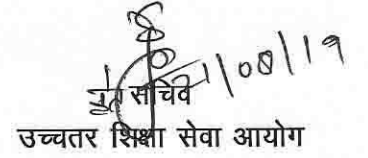 21/08/19
सचिव
उच्चतर शिक्षा सेवा आयोग